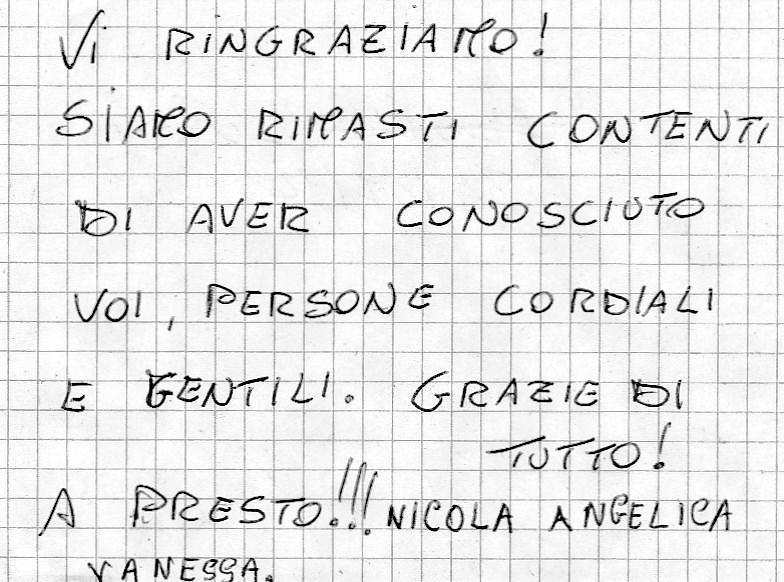 Vi RINGRAZIAMO!
SIAMO RIMASTI CONTENTI
DI AVER CONOSCIUTO
VOI, PERSONE CORDIALI
E GENTILI. GRAZIE DI
TUTTO!
A PRESTO!!! NICOLA ANGELICA
VANESSA.